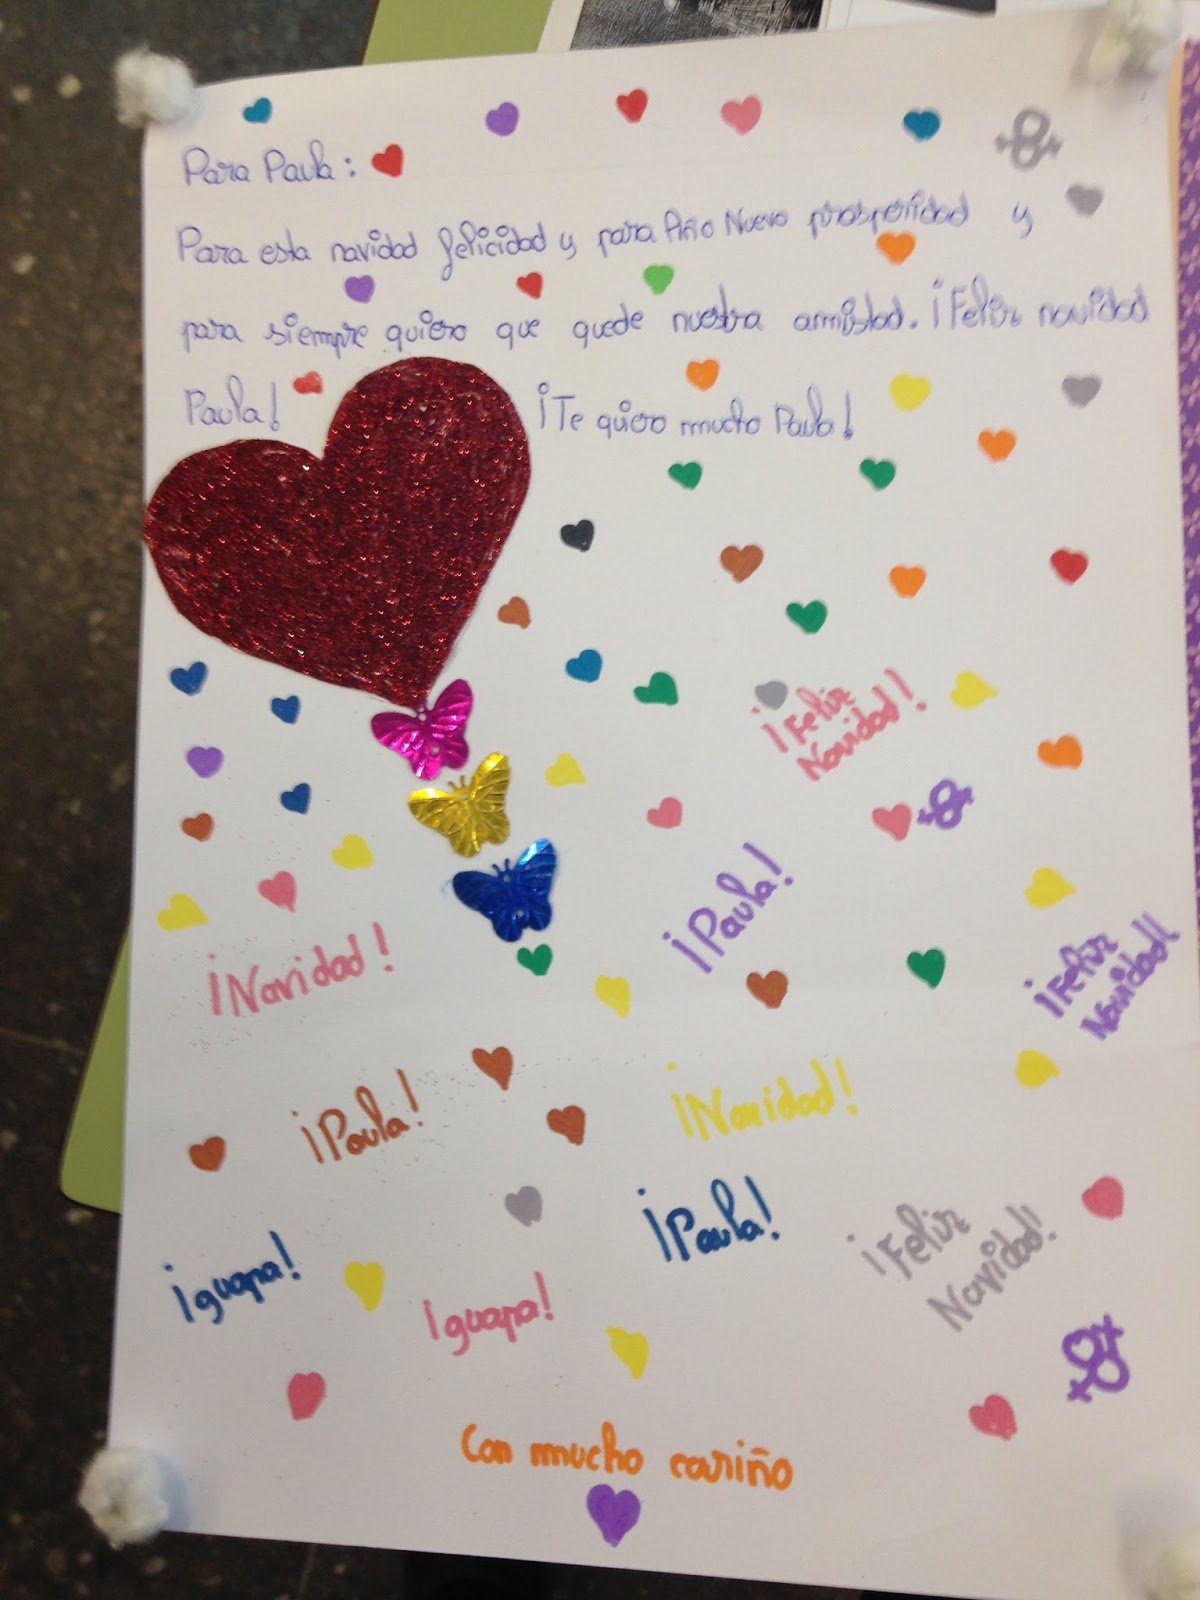 Para Paula:
Para esta navidad felicidad y para Año Nuevo prosperidad y
para siempre quiero que quede nuestra amistad. ¡Feliz navidad
Paula! ¡Te quiero mucho Paula!
¡Feliz
Navidad!
¡Paula!
¡Navidad!
¡Feliz
Navidad!
¡Paula!
¡Navidad!
¡Paula!
¡Feliz
Navidad!
¡guapa!
¡guapa!
Con mucho cariño